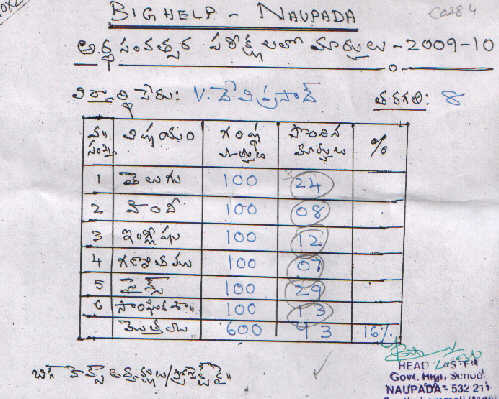 BIGHELP - NAUPADA
C0284
అర్ధ సంవత్సర పరీక్షలలో మార్కులు - 2009-10
విద్యార్థి పేరు: V. దేవి ప్రసాద్ తరగతి: 8
విషయం గరిష్ట మార్కులు పొందిన మార్కులు %
1 తెలుగు 100 24
2 హిందీ 100 08
3 ఇంగ్లీషు 100 12
4 గణితము 100 07
5 సైన్స్ 100 29
6 సాంఘిక శా 100 13
మొత్తము 600 93 16%
HEAD MASTER
Govt. High School
NAUPADA - 532 211